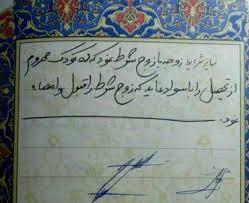 سایر شرایط زوجه با زوج شرط نمود که ۵ کودک محروم
از تحصیل را با سواد نماید که زوج شرط را قبول و امضاء
نمود.